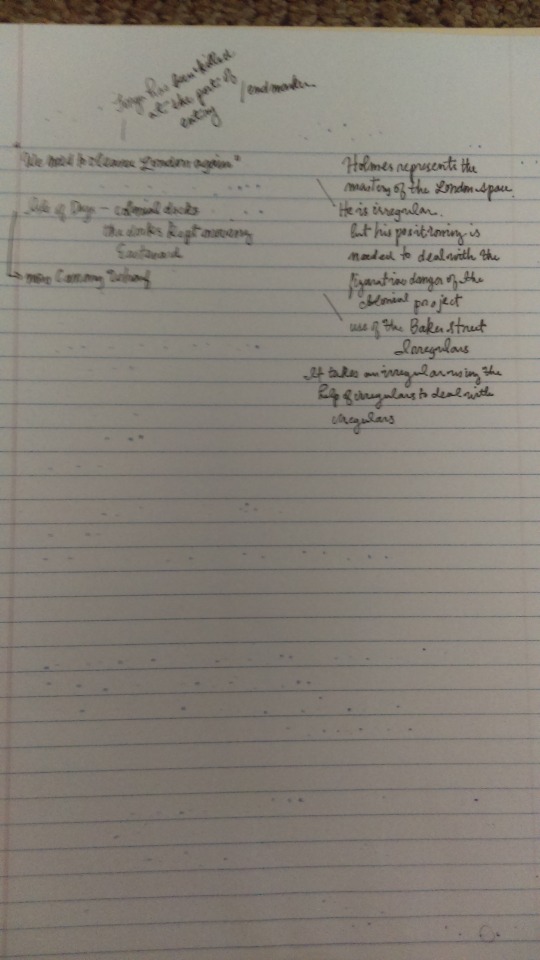 Tonga has been killed
at the port of
entry
/ end marker.
"We need to cleanse London again"
Isle of Dogs - colonial docks
the docks kept moving
Eastward
now Canary Wharf
Holmes represents the
mastery of the London space.
He is irregular.
but his positioning is
needed to deal with the
figurative danger of the
colonial project
use of the Baker Street
Irregulars
It takes an irregular using the
help of irregulars to deal with
irregulars